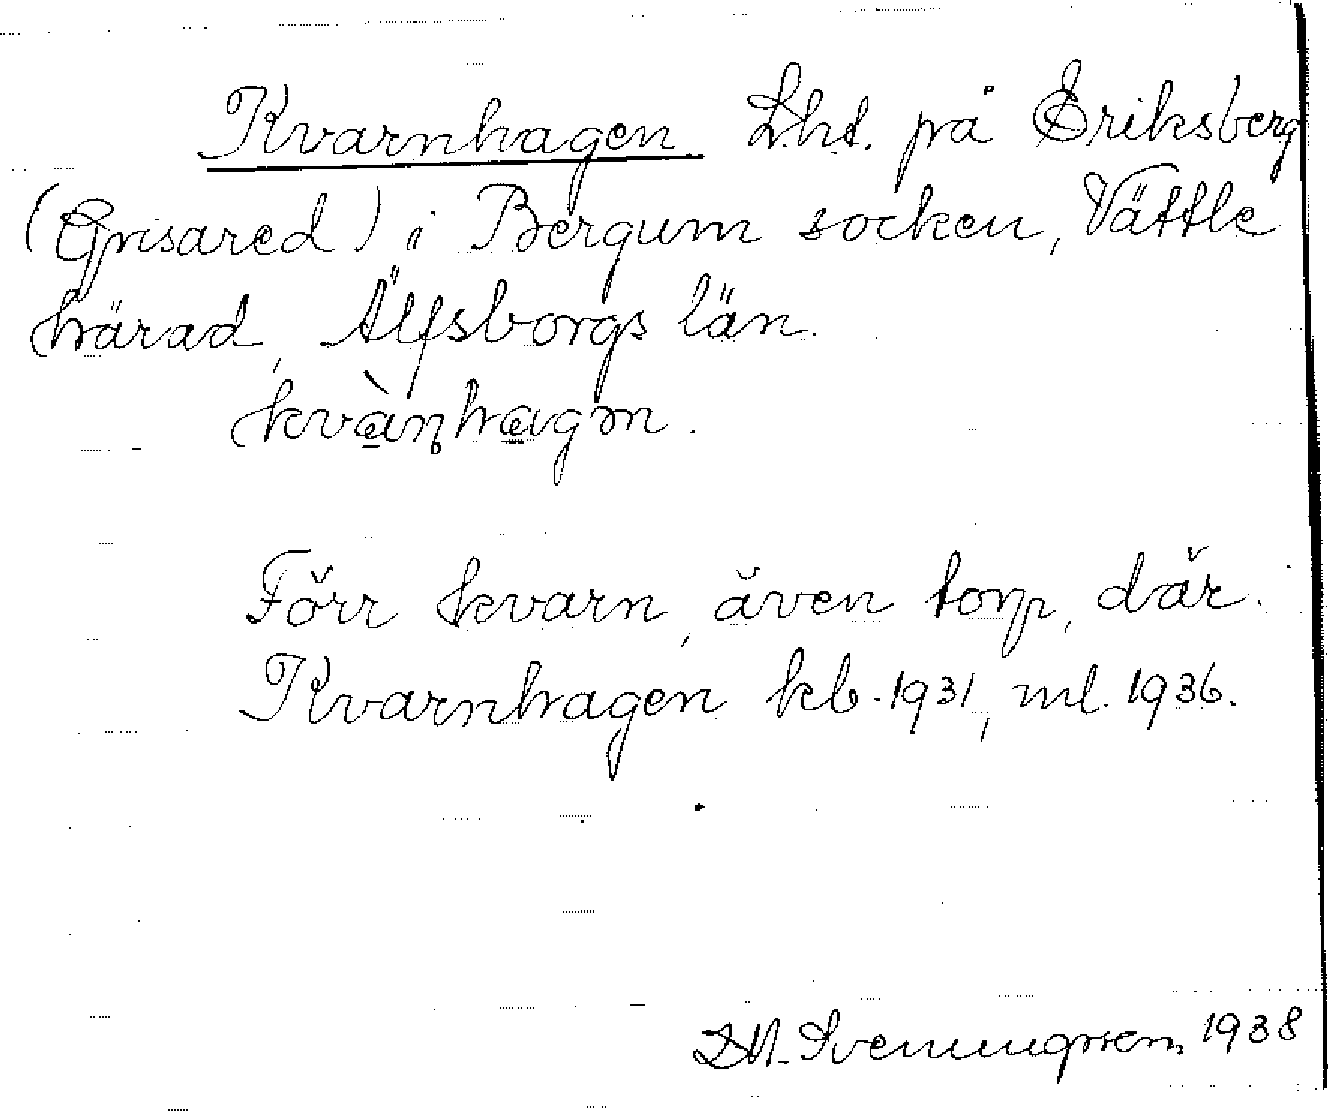 Kvarnhagen. Lht. på Eriksberg
(Grisared) i Bergum socken, Vättle
härad, Älfsborgs län.
kvànhagən.
Förr kvarn, även torp, där.
Kvarnhagen kb. 1931, ml. 1936.
Sveningsson, 1938